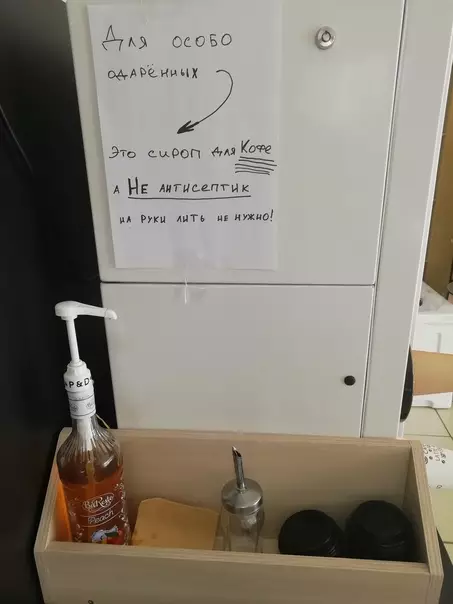 Для особо
одарённых
Это сироп для Кофе
а Не антисептик
на руки лить не нужно!
P&D
Peach